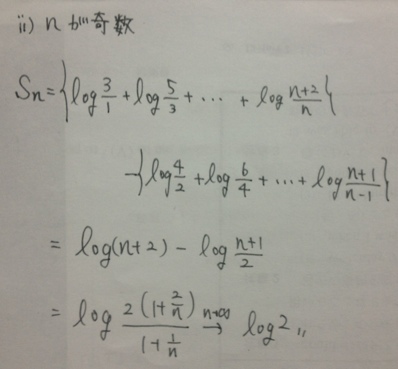 ii) n が奇数
Sn = {log 3/1 + log 5/3 + ... + log (n+2)/n}
-{log 4/2 + log 6/4 + ... + log (n+1)/(n-1)}
= log(n+2) - log (n+1)/2
= log 2(1+2/n)/(1+1/n) n→∞ → log2 〃